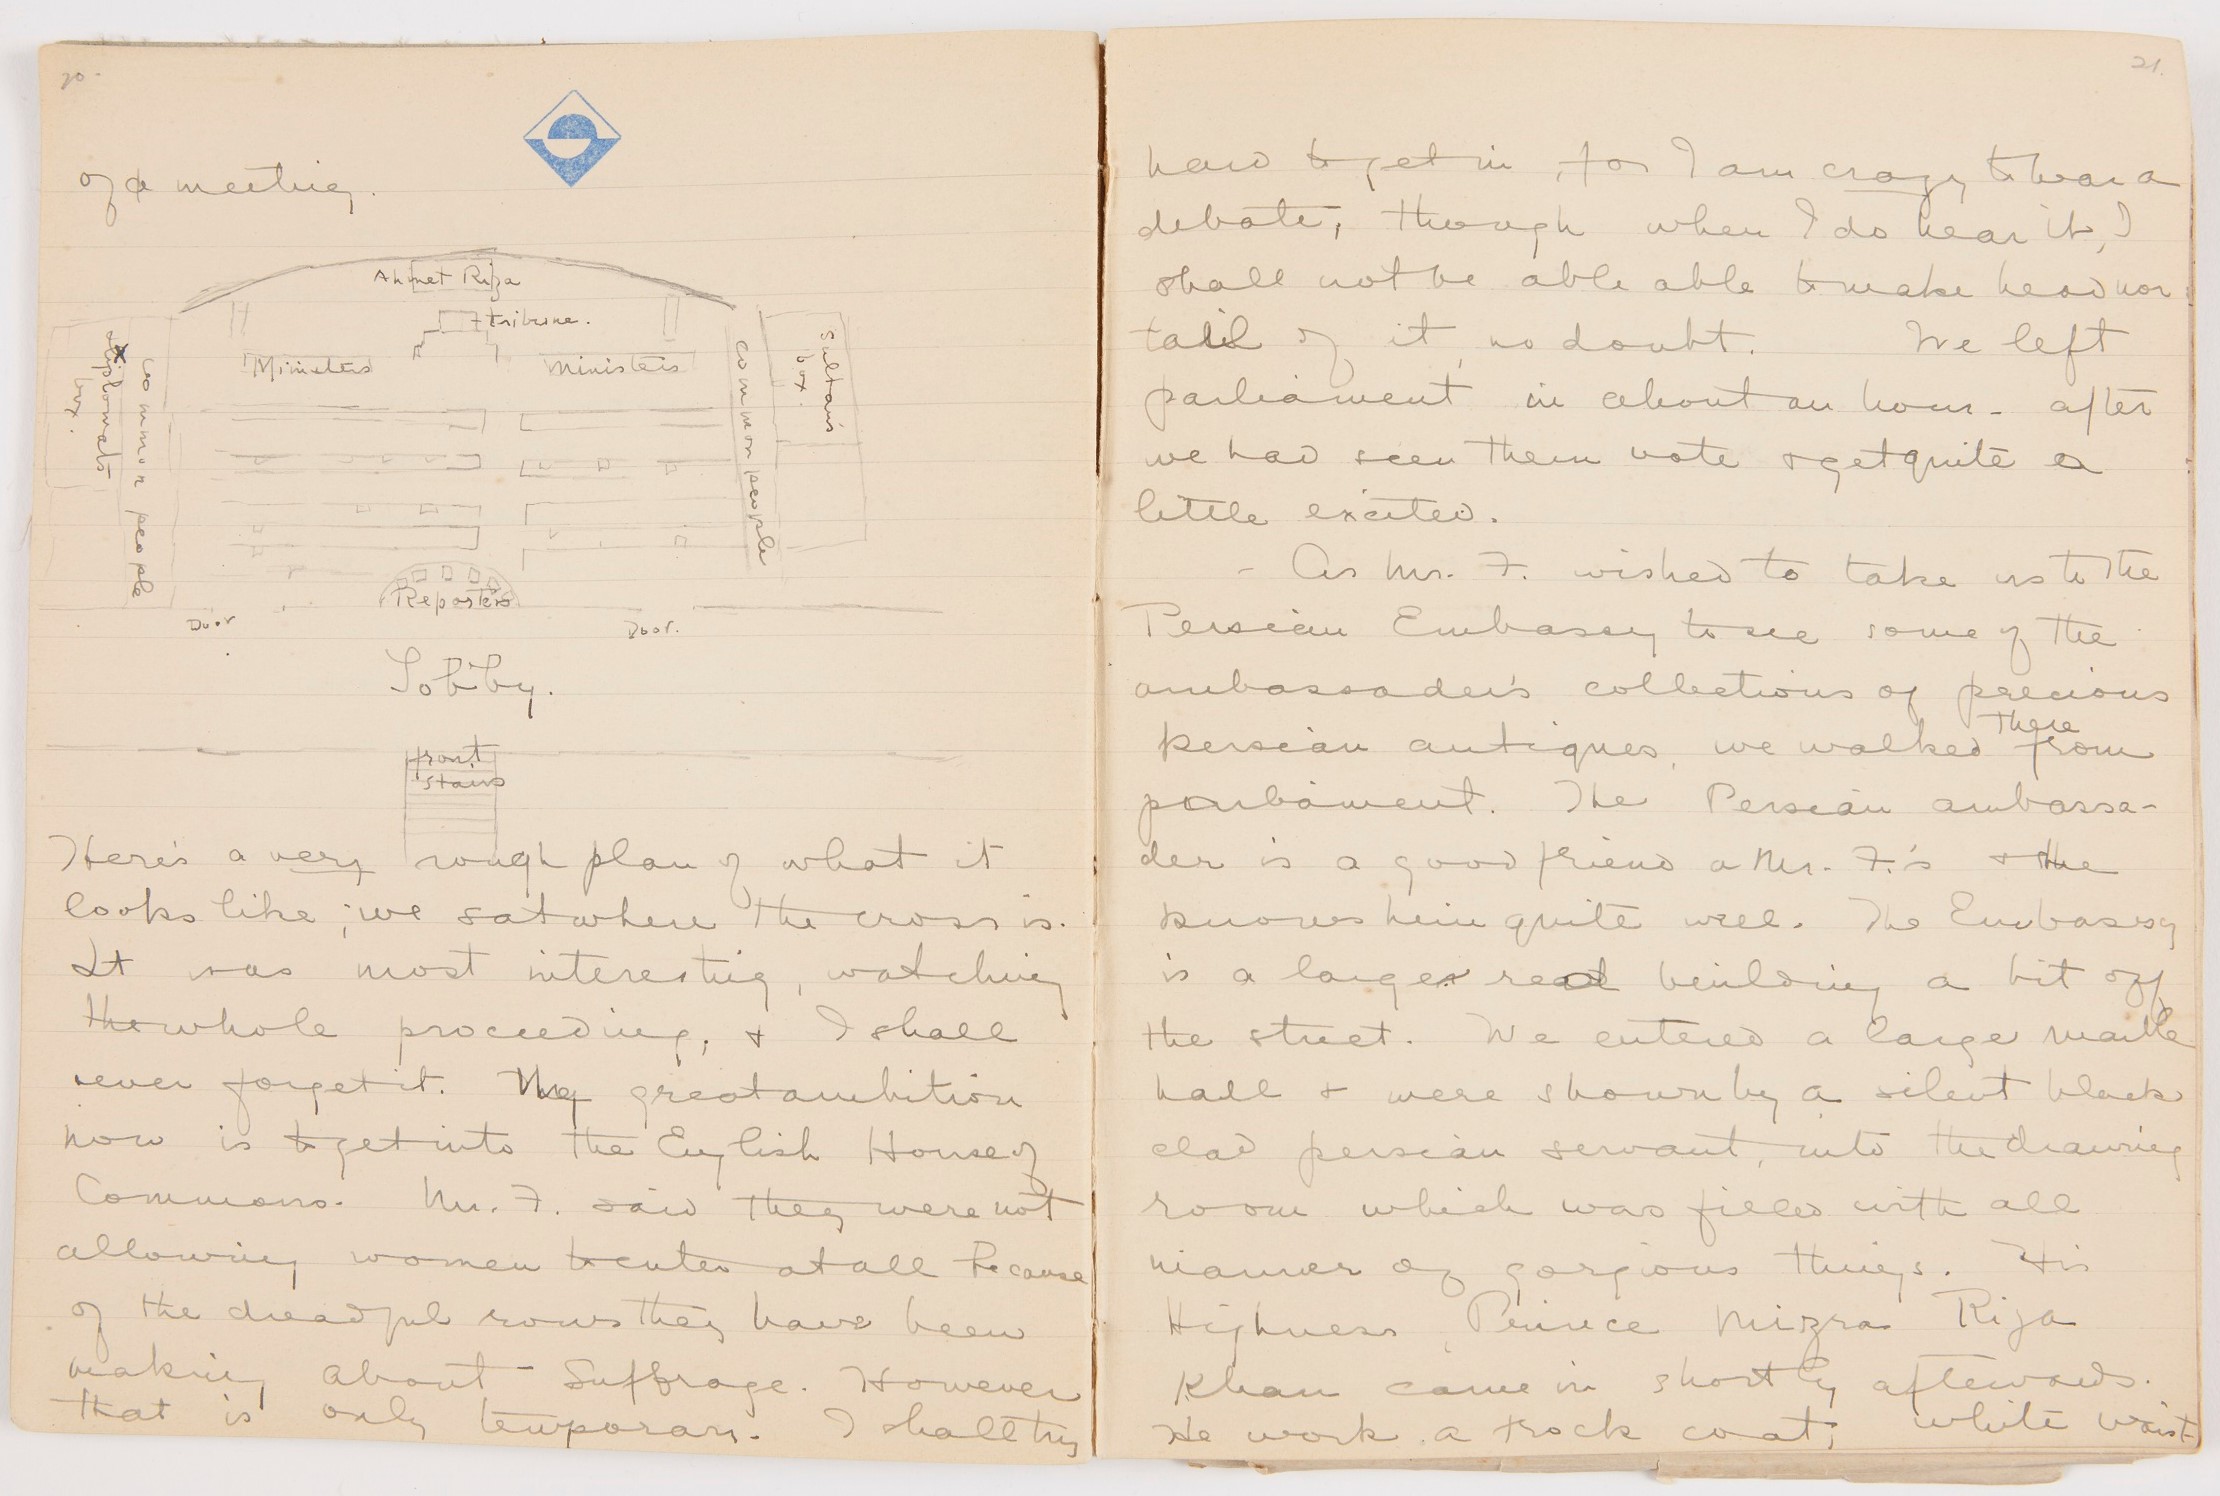 20.
of a meeting.
Ahmet Riza
tribune.
Ministers
Ministers
diplomats box.
common people
common people
Sultan's box.
Reporters
Door
Door.
Lobby.
front
stairs
Here's a very rough plan of what it
looks like; we sat where the cross is.
It was most interesting, watching
the whole proceeding, + I shall
never forget it. My great ambition
now is to get into the English House of
Commons. Mr. F. said they were not
allowing women to enter at all because
of the dreadful rows they have been
making about Suffrage. However
that is only temporary. I shall try
21.
hard to get in, for I am crazy to hear a
debate, though when I do hear it, I
shall not be able able to make head nor
tail of it, no doubt. We left
parliament in about an hour - after
we had seen them vote + get quite a
little excited.
- As Mr. F. wished to take us to the
Persian Embassy to see some of the
ambassader's collections of precious
persian antiques, we walked there from
parliament. The Persian ambassa-
der is a good friend a Mr. F.'s + the
knows him quite well. The Embassy
is a large red building a bit off
the street. We entered a large marble
hall + were shown by a silent black
clad persian servant, into the drawing
room which was filled with all
manner of gorgious things. His
Highness, Prince Mizra Riza
Khan came in shortly afterwards.
He work a frock coat, white waist